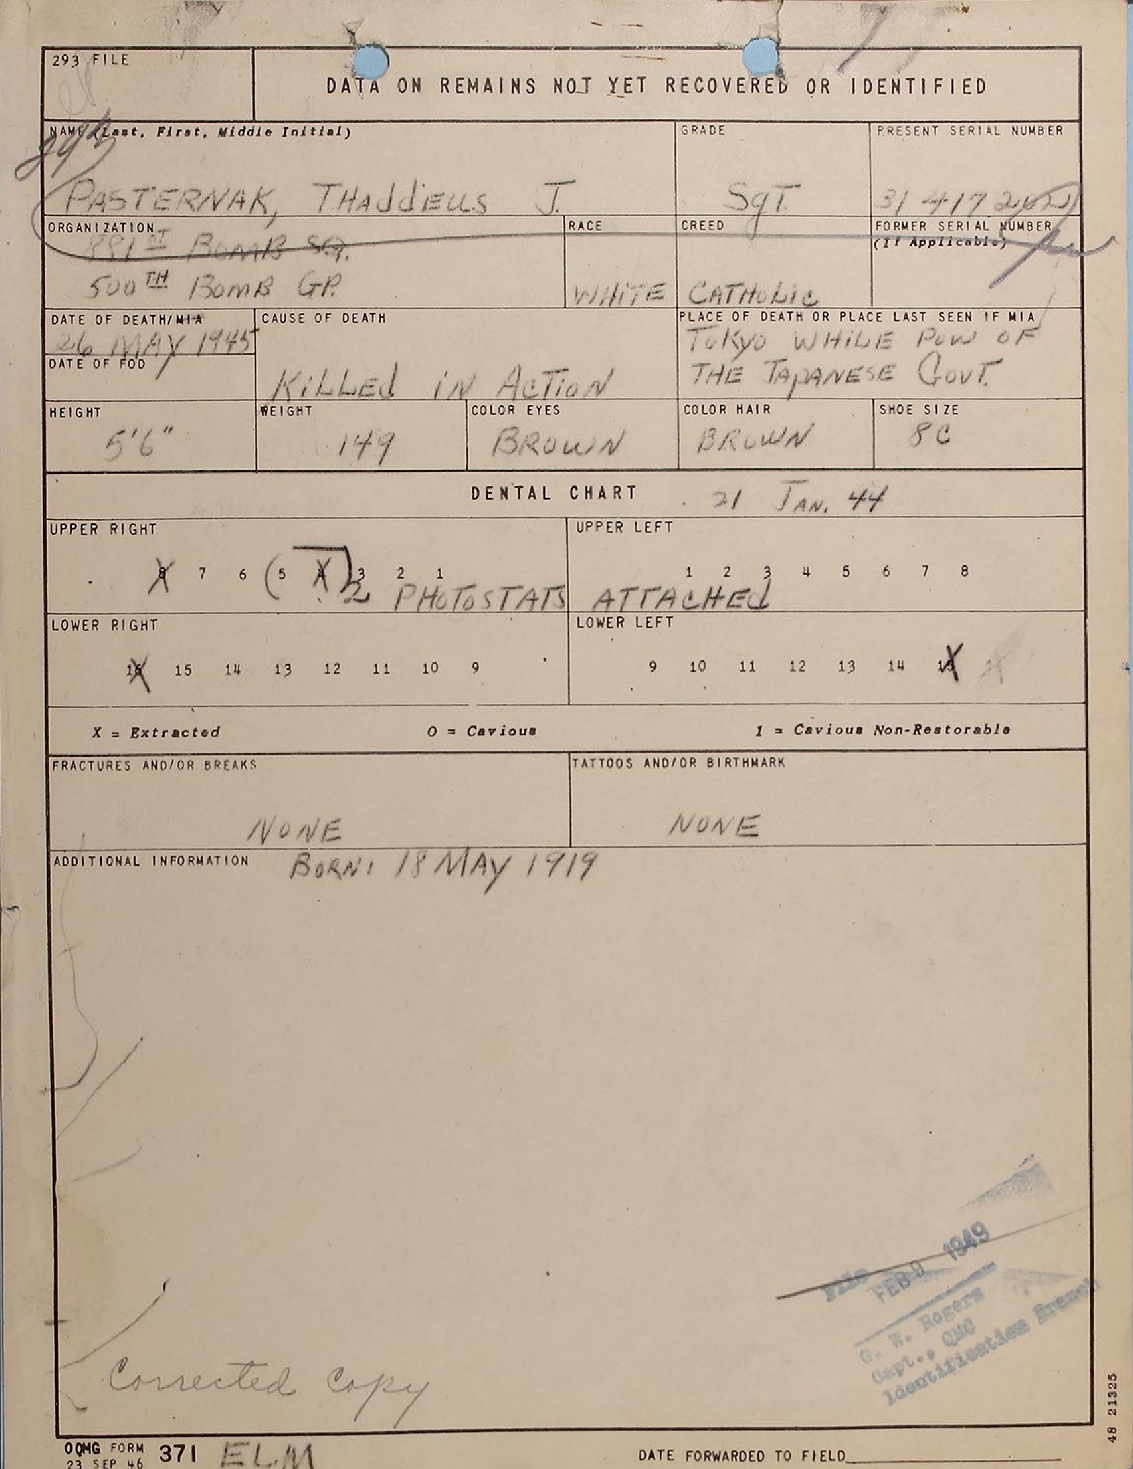 293 FILE
DATA ON REMAINS NOT YET RECOVERED OR IDENTIFIED
NAME (Last, First, Middle Initial)
GRADE
PRESENT SERIAL NUMBER
PASTERNAK, THADDIEUS J.
SGT.
31 417
ORGANIZATION
RACE
CREED
FORMER SERIAL NUMBER
(If Applicable)
881ST BOMB SQ.
500TH BOMB GP.
WHITE
CATHOLIC
DATE OF DEATH/MIA
CAUSE OF DEATH
PLACE OF DEATH OR PLACE LAST SEEN IF MIA
26 MAY 1945
TOKYO WHILE POW OF
DATE OF FOD
KILLED IN ACTION
THE JAPANESE GOVT.
HEIGHT
WEIGHT
COLOR EYES
COLOR HAIR
SHOE SIZE
5'6"
149
BROWN
BROWN
8C
DENTAL CHART
21 JAN. 44
UPPER RIGHT
UPPER LEFT
8 7 6 (5 4) 3 2 1
1 2 3 4 5 6 7 8
2 PHOTOSTATS ATTACHED
LOWER RIGHT
LOWER LEFT
16 15 14 13 12 11 10 9
9 10 11 12 13 14 15
X = Extracted
O = Cavious
1 = Cavious Non-Restorable
FRACTURES AND/OR BREAKS
TATTOOS AND/OR BIRTHMARK
NONE
NONE
ADDITIONAL INFORMATION
BORN: 18 MAY 1919
FILE
FEB 9 1949
G. W. Rogers
Capt., QMC
Identification Branch
Corrected Copy
48 21325
OQMG FORM
23 SEP 46
371
ELM
DATE FORWARDED TO FIELD